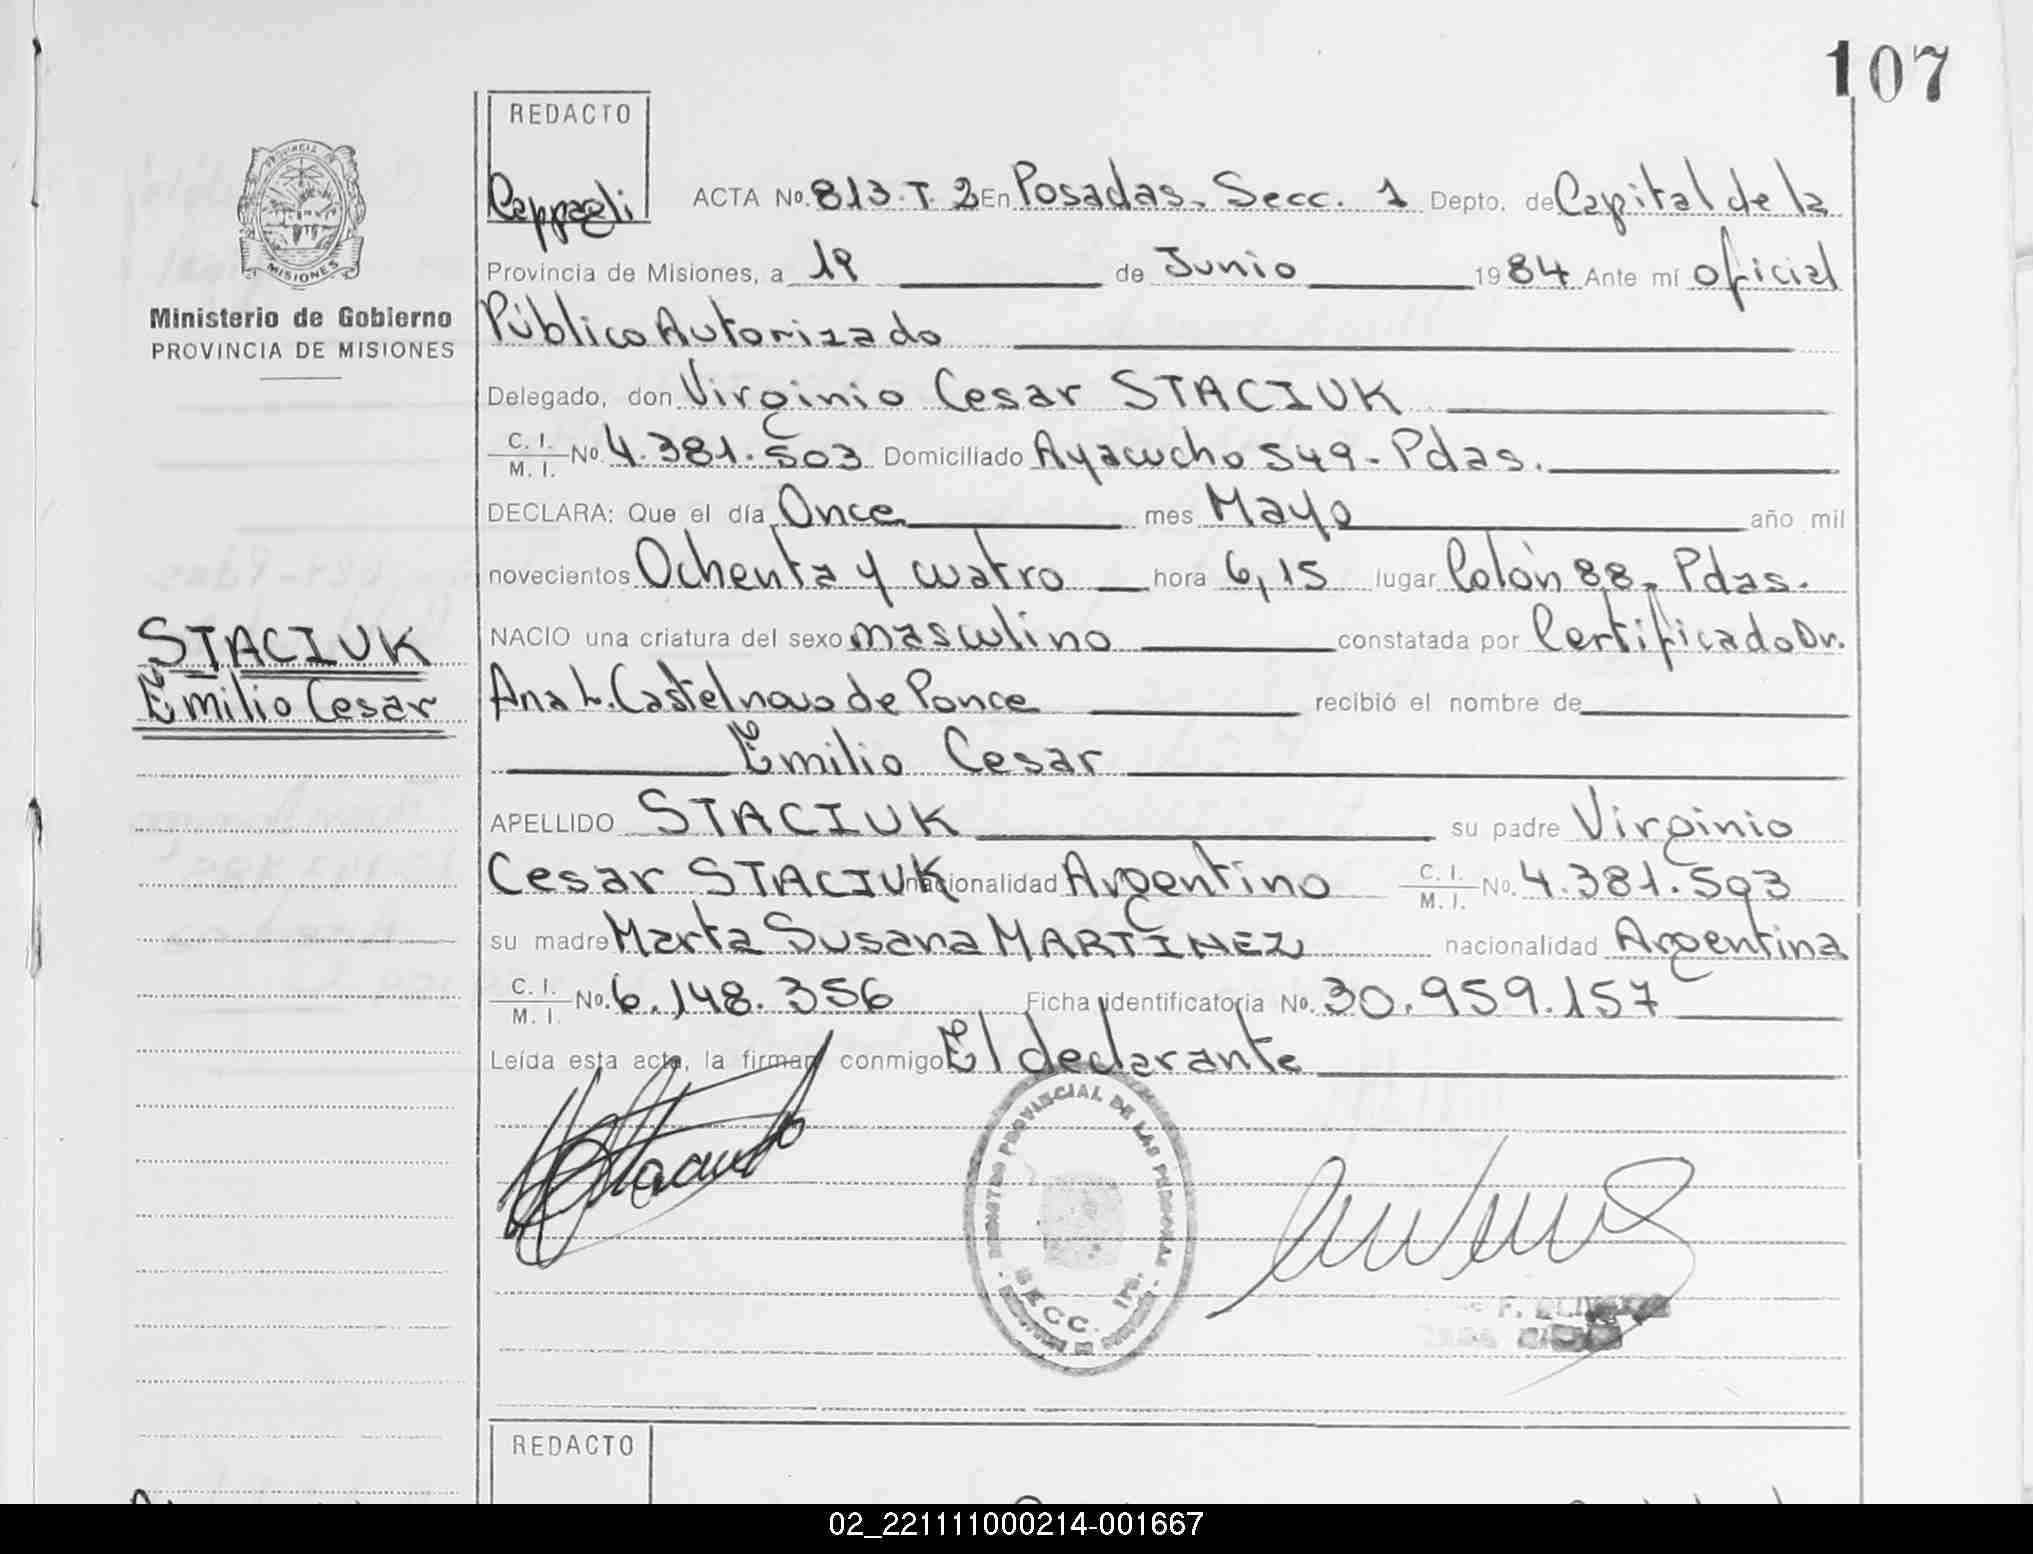 107
REDACTO
ACTA No. 813.T. 2 En Posadas, Secc. 1 Depto. de Capital de la
Provincia de Misiones, a 19 de Junio 1984 Ante mí oficial
Público Autorizado
PROVINCIA DE
MISIONES
Ministerio de Gobierno
PROVINCIA DE MISIONES
Delegado, don Virginio Cesar STACIUK
C. I. / M. I. No. 4.381.503 Domiciliado Ayacucho 549 - Pdas.
DECLARA: Que el día Once mes Mayo año mil
novecientos Ochenta y cuatro hora 6,15 lugar Colón 88, Pdas.
NACIO una criatura del sexo masculino constatada por Certificado Dr.
STACIUK
Emilio Cesar
Ana L. Castelnovo de Ponce recibió el nombre de
Emilio Cesar
APELLIDO STACIUK su padre Virginio
Cesar STACIUK nacionalidad Argentino C. I. / M. I. No. 4.381.503
su madre Marta Susana MARTINEZ nacionalidad Argentina
C. I. / M. I. No. 6.148.356 Ficha identificatoria No. 30.959.157
Leída esta acta, la firman conmigo El declarante
REGISTRO PROVINCIAL DE LAS PERSONAS
SECC. 1ra.
REDACTO
02_221111000214-001667